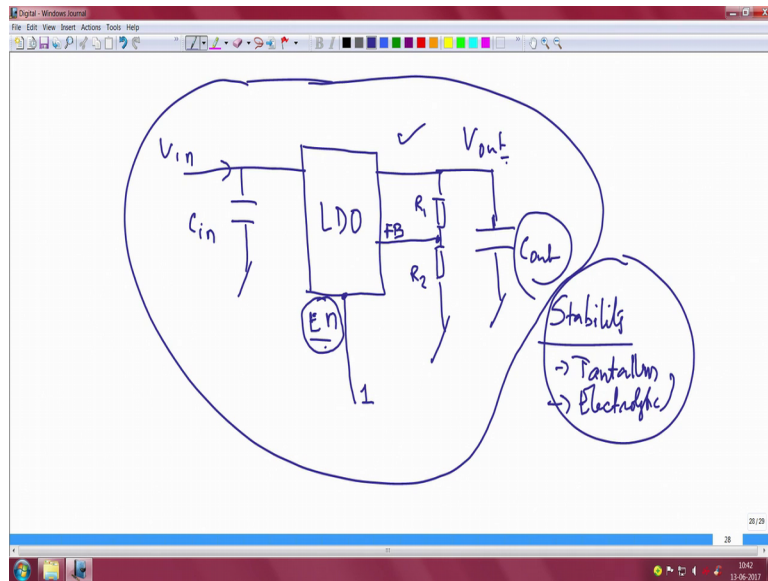 Digital - Windows Journal
File Edit View Insert Actions Tools Help
Vin
Cin
LDO
FB
En
1
Vout
R1
R2
Cout
Stability
→ Tantallum
→ Electrolytic
28/29
28
10:42
13-06-2017